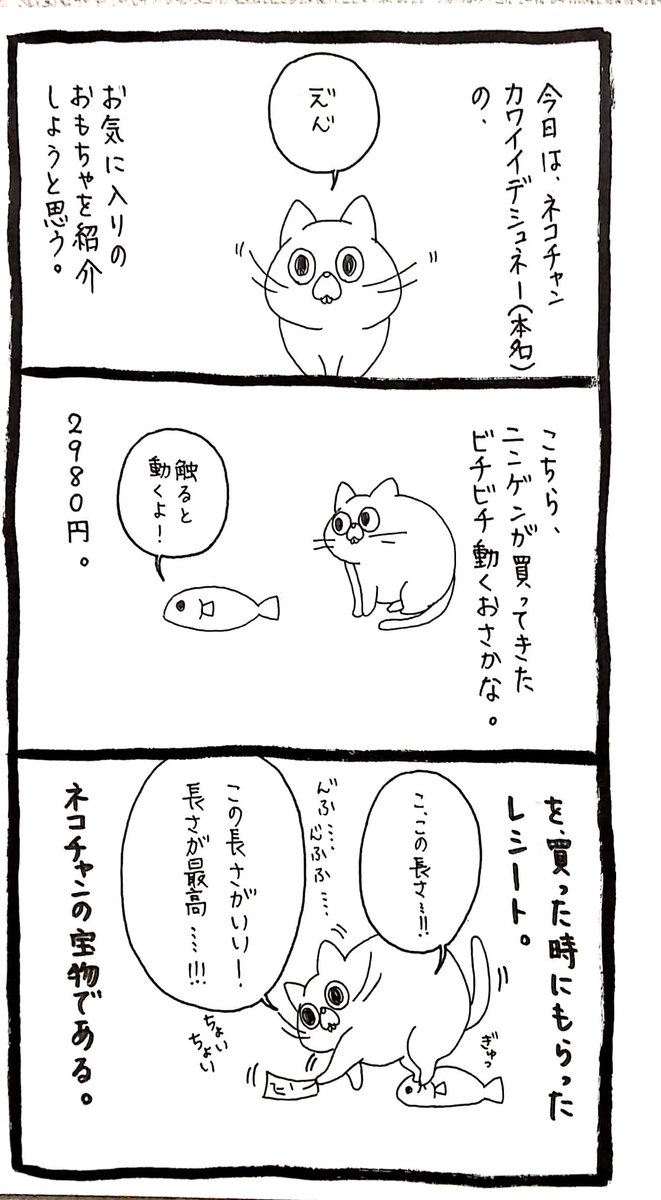 今日は、ネコチャン
カワイイデシュネー(本名)
の、
えん゛
お気に入りの
おもちゃを紹介
しようと思う。
こちら、
ニンゲンが買ってきた
ビチビチ動くおさかな。
触ると
動くよ！
2980円。
を、買った時にもらった
レシート。
こ、この長さ…!!
んふ……んふふ……
この長さがいい！
長さが最高……!!!
ちょい
ちょい
ぎゅっ
ネコチャンの宝物である。